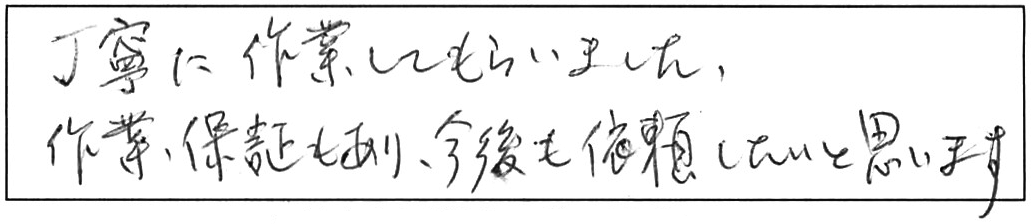 丁寧に作業してもらいました、
作業、保証もあり、今後も依頼したいと思います